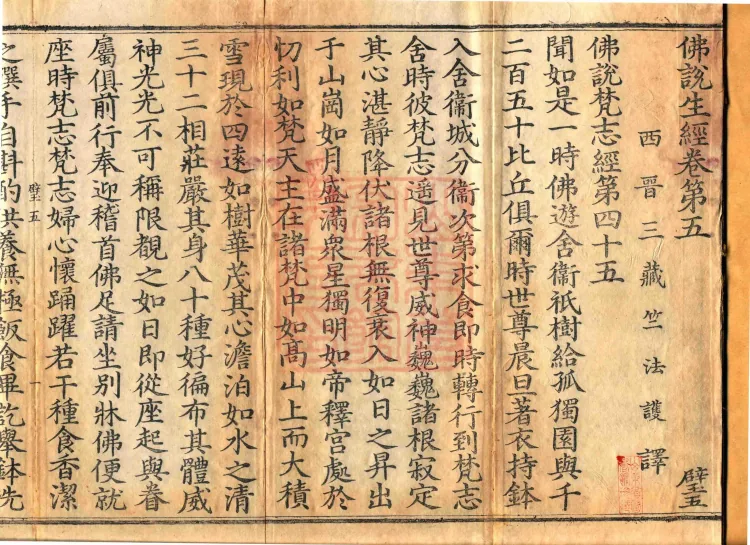 佛說生經卷第五 璧五
西晉三藏竺法護譯
佛說梵志經第四十五
聞如是一時佛遊舍衞祇樹給孤獨園與千
二百五十比丘俱爾時世尊晨旦著衣持鉢
入舍衞城分衞次第求食即時轉行到梵志
舍時彼梵志遥見世尊威神巍巍諸根寂定
其心湛靜降伏諸根無復衰入如日之昇出
于山崗如月盛滿衆星獨明如帝釋宮處於
忉利如梵天主在諸梵中如髙山上而大積
雪現於四遠如樹華茂其心澹泊如水之清
三十二相莊嚴其身八十種好徧布其體威
神光光不可稱限覩之如日即從座起與眷
屬俱前行奉迎稽首佛足請坐別牀佛便就
座時梵志梵志婦心懷踊躍若干種食香潔
璧五 一
之饌手自斟酌供養無極飯食畢訖舉鉢洗